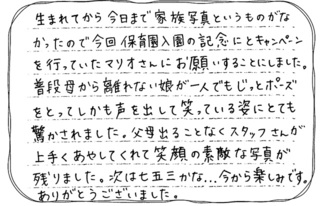 生まれてから今日まで家族写真というものがな
かったので今回保育園入園の記念にとキャンペーン
を行っていたマリオさんにお願いすることにしました。
普段母から離れない娘が一人でもじっとポーズ
をとってしかも声を出して笑っている姿にとても
驚かされました。父母出ることなくスタッフさんが
上手くあやしてくれて笑顔の素敵な写真が
残りました。次は七五三かな...今から楽しみです。
ありがとうございました。